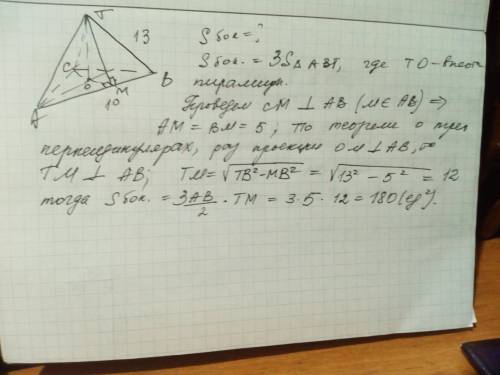 T
13
C
O
M
B
A
10
Sбок=?
Sбок. = 3S△ABT, где TO-высота
пирамиды.
Проведем CM ⊥ AB (M∈AB) ⇒
AM = BM = 5; По теореме о трех
перпендикулярах, раз проекция OM⊥AB, то
TM ⊥ AB; TM = √TB²-MB² = √13² - 5² = 12
тогда Sбок. = 3AB/2 · TM = 3·5·12 = 180 (ед²).